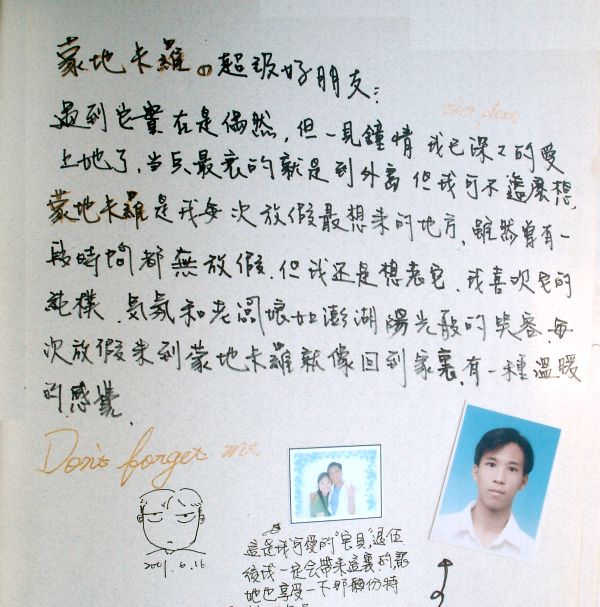 蒙地卡羅の超級好朋友:
遇到它實在是偶然,但一見鐘情我已深深的愛
上她了,當兵最衰的就是到外島但我可不這麼想,
蒙地卡羅是我每次放假最想來的地方,雖然曾有一
段時間都無放假,但我还是想老它,我喜歡它的
純樸、気氛和老闆娘如澎湖陽光般的笑容,每
次放假來到蒙地卡羅就像回到家裏,有一種溫暖
的感覺.
Don't forget me.
2001.6.16
這是我可愛的"宝貝"退伍
後我一定会帶來這裏的,讓
她也享受一下那種份特